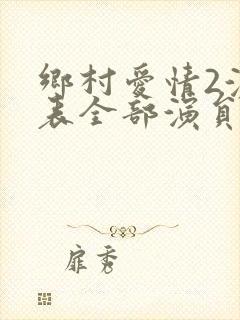 鄉村愛情2演
表全部演員
扉秀